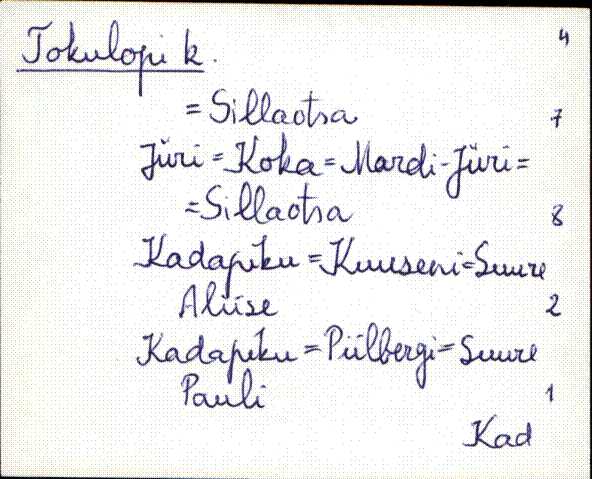 Tokulopi k. 4
= Sillaotsa 7
Jüri = Koka = Mardi-Jüri =
= Sillaotsa 8
Kadapiku = Kuuseni = Suure
Aliise 2
Kadapiku = Piilbergi = Suure
Pauli 1
Kad